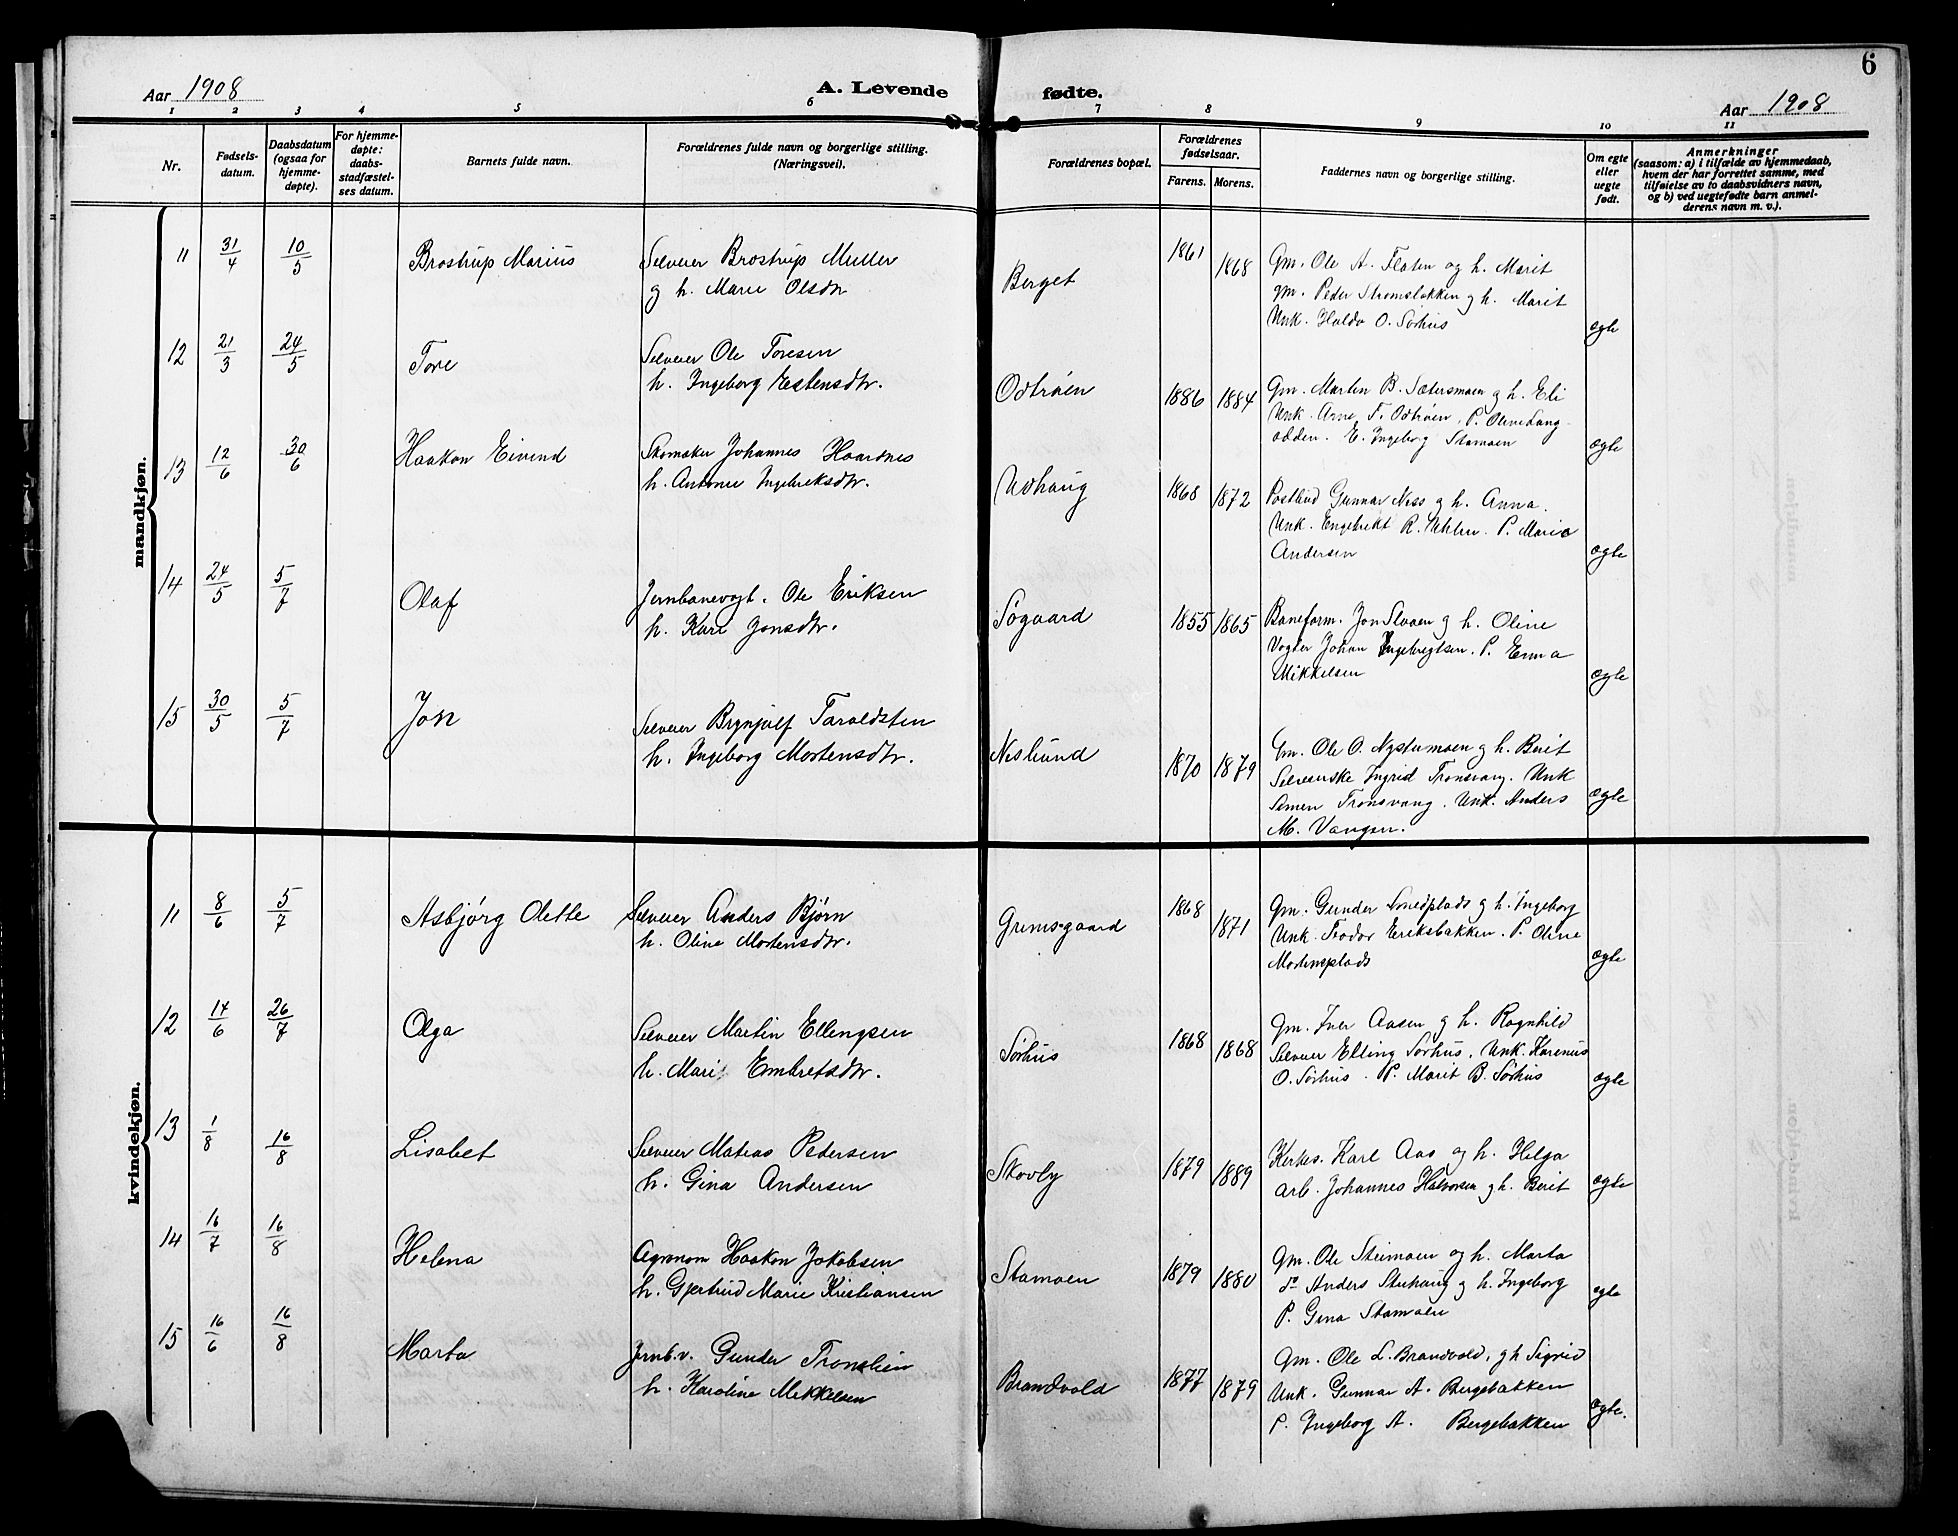 6
Aar 1908
A. Levende fødte.
Aar 1908
1 2 3 4 5 6 7 8 9 10 11
Nr.
Fødsels-
datum.
Daabsdatum
(ogsaa for
hjemme-
døpte).
For hjemme-
døpte:
daabs-
stadfæstel-
ses datum.
Barnets fulde navn.
Forældrenes fulde navn og borgerlige stilling.
(Næringsvei).
Forældrenes bopæl.
Forældrenes
fødselsaar.
Farens. Morens.
Faddernes navn og borgerlige stilling.
Om egte
eller
uegte
født.
Anmerkninger
(saasom: a) i tilfælde av hjemmedaab,
hvem der har forrettet samme, med
tilføielse av to daabsvidners navn,
og b) ved uegtefødte barn anmel-
derens navn m. v.).
mandkjøn.
11 31/4 10/5 Brostrup Marius
Selveier Brostrup Muller
g h. Marie Olsdtr
Berget 1861 1868
Gm. Ole A. Floten og h. Marit
gm. Peder Strømsløkken g h. Marit
Unk. Haldo O. Sørhus
ægte
12 21/3 24/5 Tore
Selveier Ole Toresen
h. Ingeborg Estensdtr.
Odtrøen 1886 1884
Gm. Martin B. Sætersmoen g h. Eli
Unk. Arne T. Odtrøen, P. Oline Lang-
odden. E. Ingeborg Stamoen
ægte
13 12/6 30/6 Haakon Eivind
Skomaker Johannes Haardnes
h. Antonie Ingebriktsdtr.
Udhaug 1868 1872
Postbud Gunnar Ness g h. Anna.
Unk. Engebrikt R. Uhlen. P. Marie
Andersen
ægte
14 24/5 5/7 Olaf
Jernbanevogt. Ole Eriksen
h. Kari Jonsdtr.
Søgaard 1855 1865
Baneform. Jon Sloaen g h. Oline
Vogter Johan Ingebregtsen. P. Emma
Mikkelsen
ægte
15 30/5 5/7 Jon
Selveier Brynjulf Taraldsten
h. Ingeborg Mortensdtr.
Neslund 1870 1879
Gm. Ole O. Nystumoen g h. Berit
Selveierske Ingrid Tronsvang. Unk
Simen Tronsvang. Unk. Anders
M. Vangen.
ægte
kvindekjøn.
11 8/6 5/7 Asbjørg Olette
Selveier Anders Bjørn
h. Oline Mortensdtr.
Grimsgaard 1868 1871
Gm. Gunder Smedplads g h. Ingeborg
Unk. Frodor Eriksbakken. P. Oline
Mortensplads
ægte
12 14/6 26/7 Olga
Selveier Martin Ellengsen
h. Mari Embretsdtr.
Sørhus 1868 1868
Gm. Iver Aasen g h. Ragnhild
Selveier Elling Sørhus. Unk. Karenus
O. Sørhus. P. Marit B. Sørhus
ægte
13 1/8 16/8 Lisabet
Selveier Matias Pedersen
h. Gina Andersen
Skovly 1879 1889
Kirkes. Karl Aas og h. Helga
arb. Johannes Halvorsen g h. Berit
ægte
14 16/7 16/8 Helena
Agronom Haakon Jakobsen
h. Gjertrud Marie Kristiansen
Stamoen 1879 1880
Gm. Ole Steimoen og h. Marta
do Anders Stuhaug g h. Ingeborg
P. Gina Stamoen
ægte
15 16/6 16/8 Marta
Jernb.v. Gunder Tronslien
h. Karoline Mikkelsen
Brandvold 1877 1879
Gm. Ole L. Brandvold, g h Sigrid
Unk. Gunnar A. Bergebakken
P. Ingeborg A. Bergebakken
ægte.